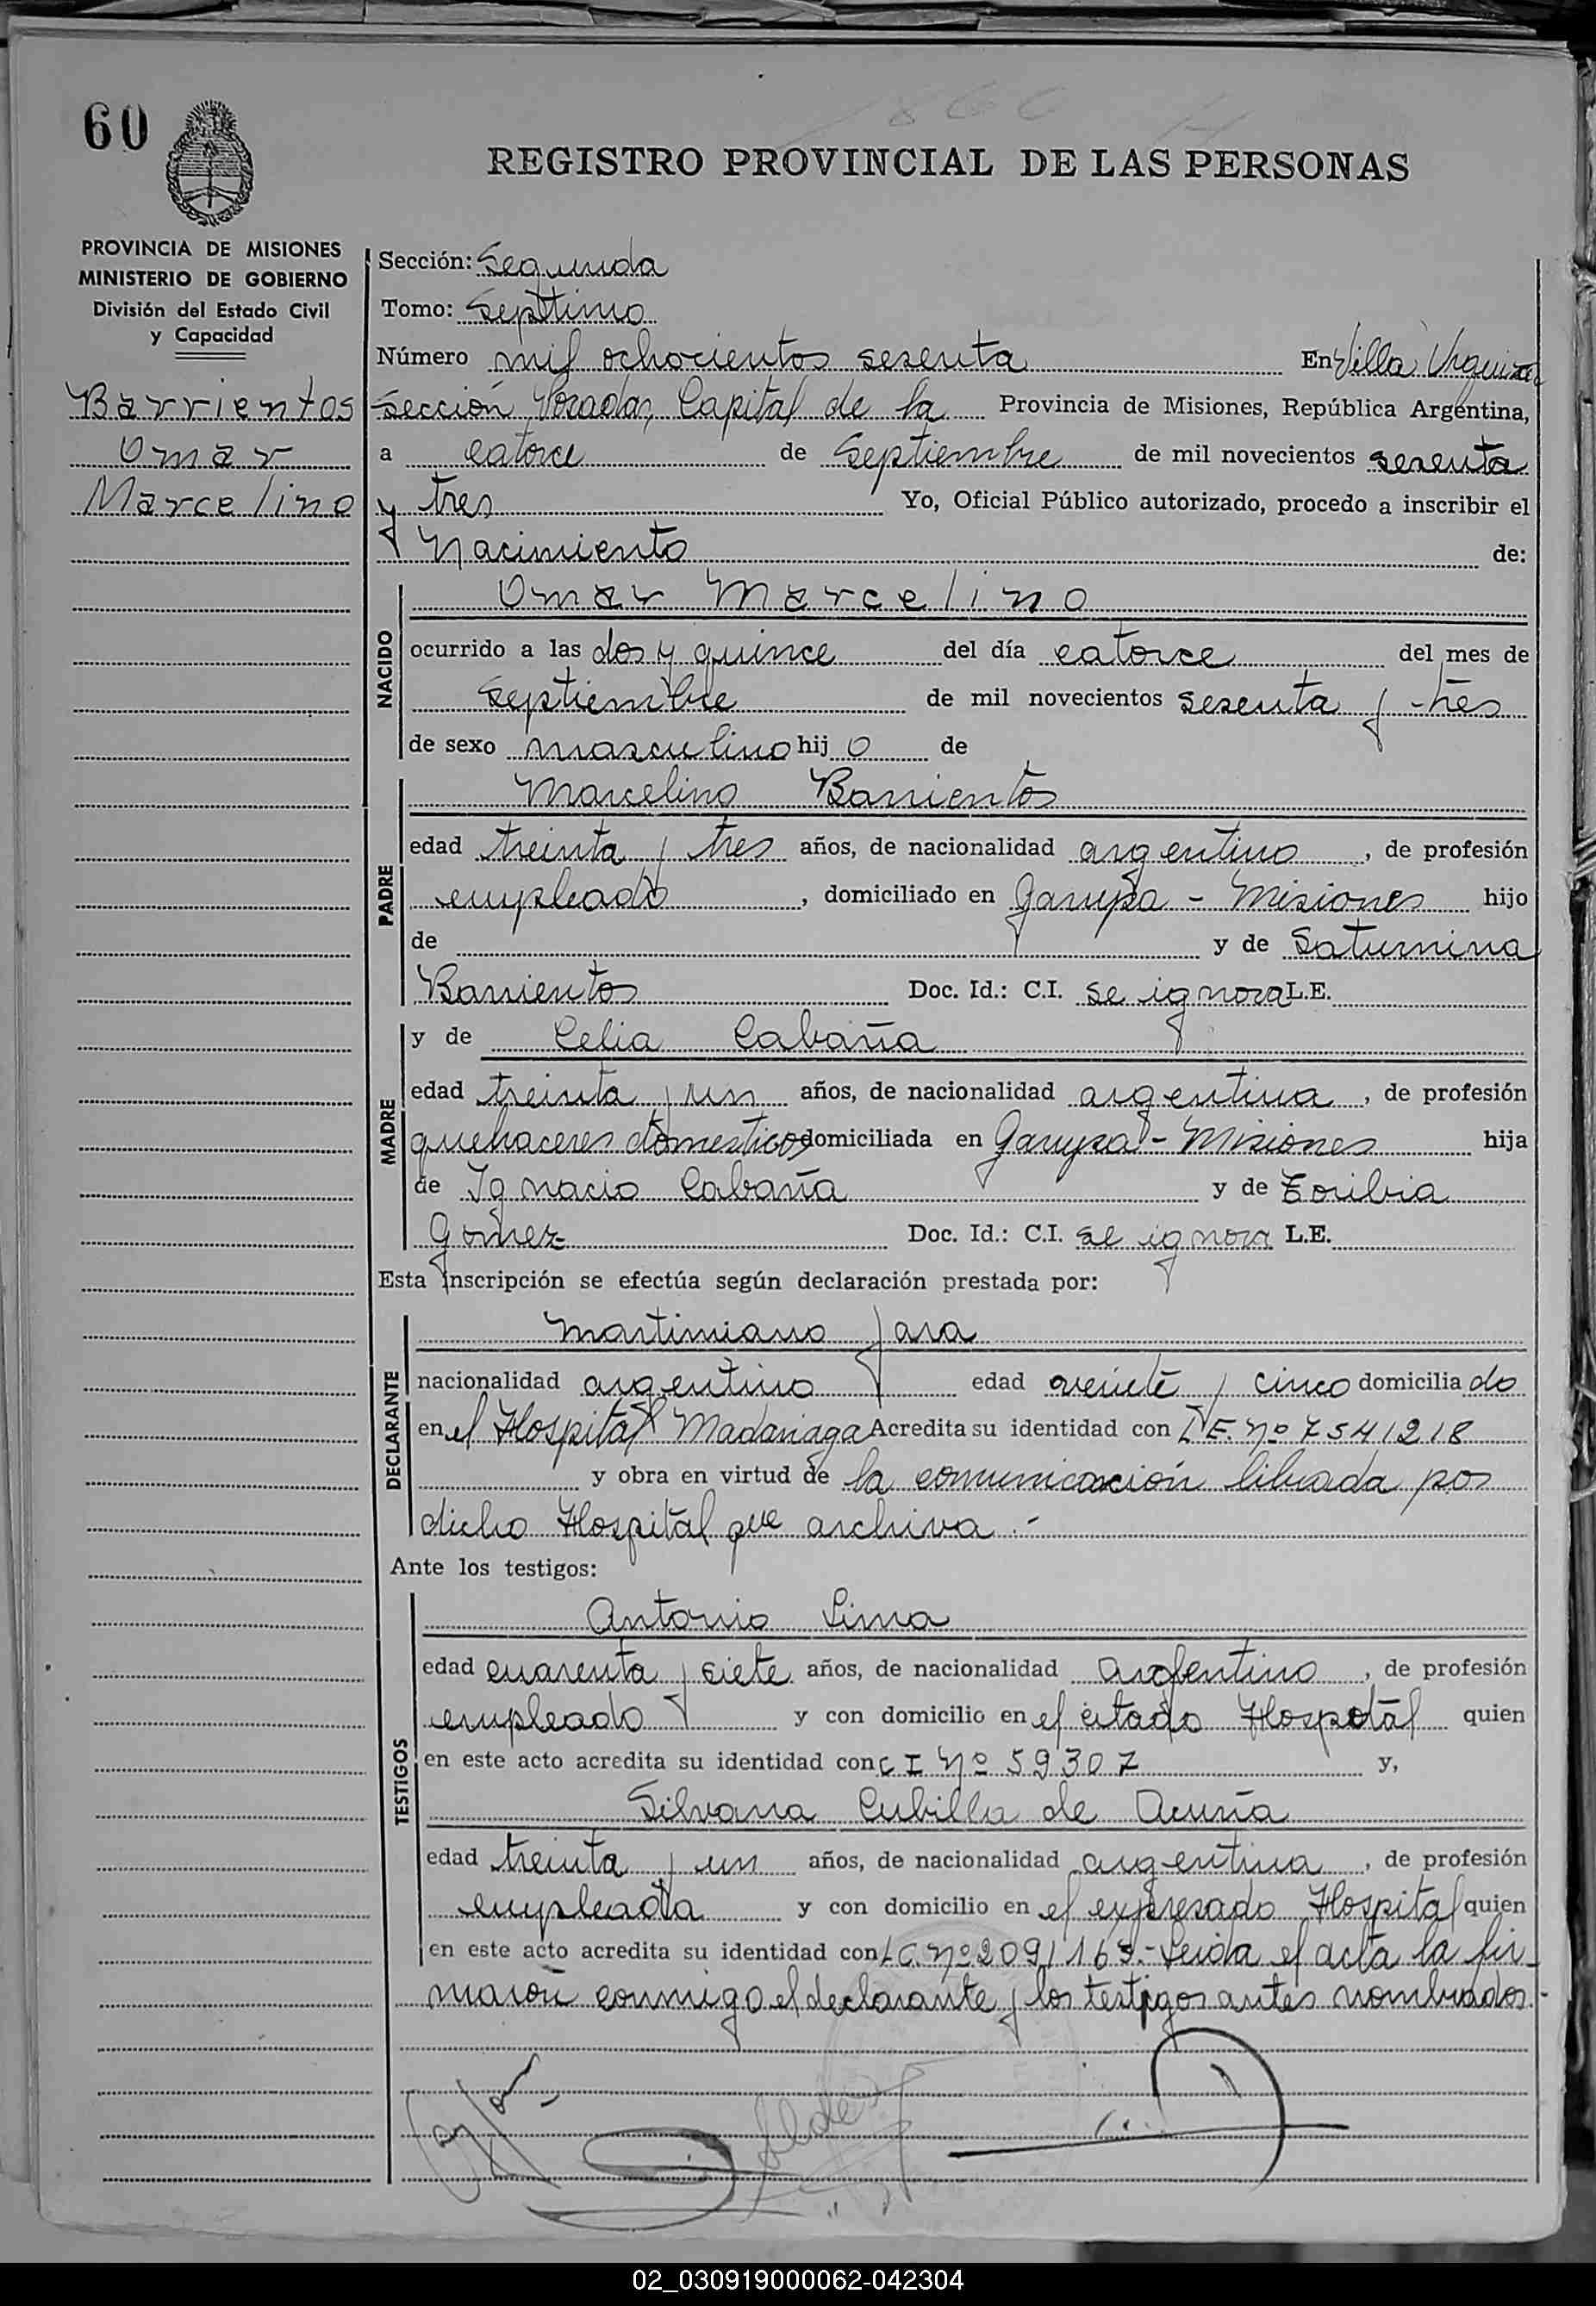 60
REGISTRO PROVINCIAL DE LAS PERSONAS
PROVINCIA DE MISIONES
MINISTERIO DE GOBIERNO
División del Estado Civil
y Capacidad
Barrientos
Omar
Marcelino
Sección: Segunda
Tomo: Septimo
Número mil ochocientos sesenta En Villa Urquiza
Sección Posadas, Capital de la Provincia de Misiones, República Argentina,
a catorce de Septiembre de mil novecientos sesenta
y tres Yo, Oficial Público autorizado, procedo a inscribir el
Nacimiento de:
NACIDO
Omar Marcelino
ocurrido a las dos y quince del día catorce del mes de
septiembre de mil novecientos sesenta y tres
de sexo masculino hij o de
PADRE
Marcelino Barrientos
edad treinta y tres años, de nacionalidad argentino, de profesión
empleado, domiciliado en Garupa - Misiones hijo
de y de Saturnina
Barrientos Doc. Id.: C.I. se ignora L.E.
MADRE
y de Celia Cabaña
edad treinta y un años, de nacionalidad argentina, de profesión
quehaceres domesticos domiciliada en Garupa - Misiones hija
de Ignacio Cabaña y de Toribia
Gomez Doc. Id.: C.I. se ignora L.E.
Esta inscripción se efectúa según declaración prestada por:
DECLARANTE
Martimiano Jara
nacionalidad argentino edad veinte y cinco domicilia do
en el Hospital Madariaga Acredita su identidad con L.E. nº 7541218
y obra en virtud de la comunicación librada por
dicho Hospital que archiva.-
Ante los testigos:
TESTIGOS
Antonio Lima
edad cuarenta y siete años, de nacionalidad argentino, de profesión
empleado y con domicilio en el citado Hospital quien
en este acto acredita su identidad con C I Nº 59307 y,
Silvana Cubilla de Acuña
edad treinta y un años, de nacionalidad argentina, de profesión
empleada y con domicilio en el expresado Hospital quien
en este acto acredita su identidad con L.C. nº 2091163.- Leida el acta la fir_
maron conmigo el declarante y los testigos antes nombrados.-
02_030919000062-042304